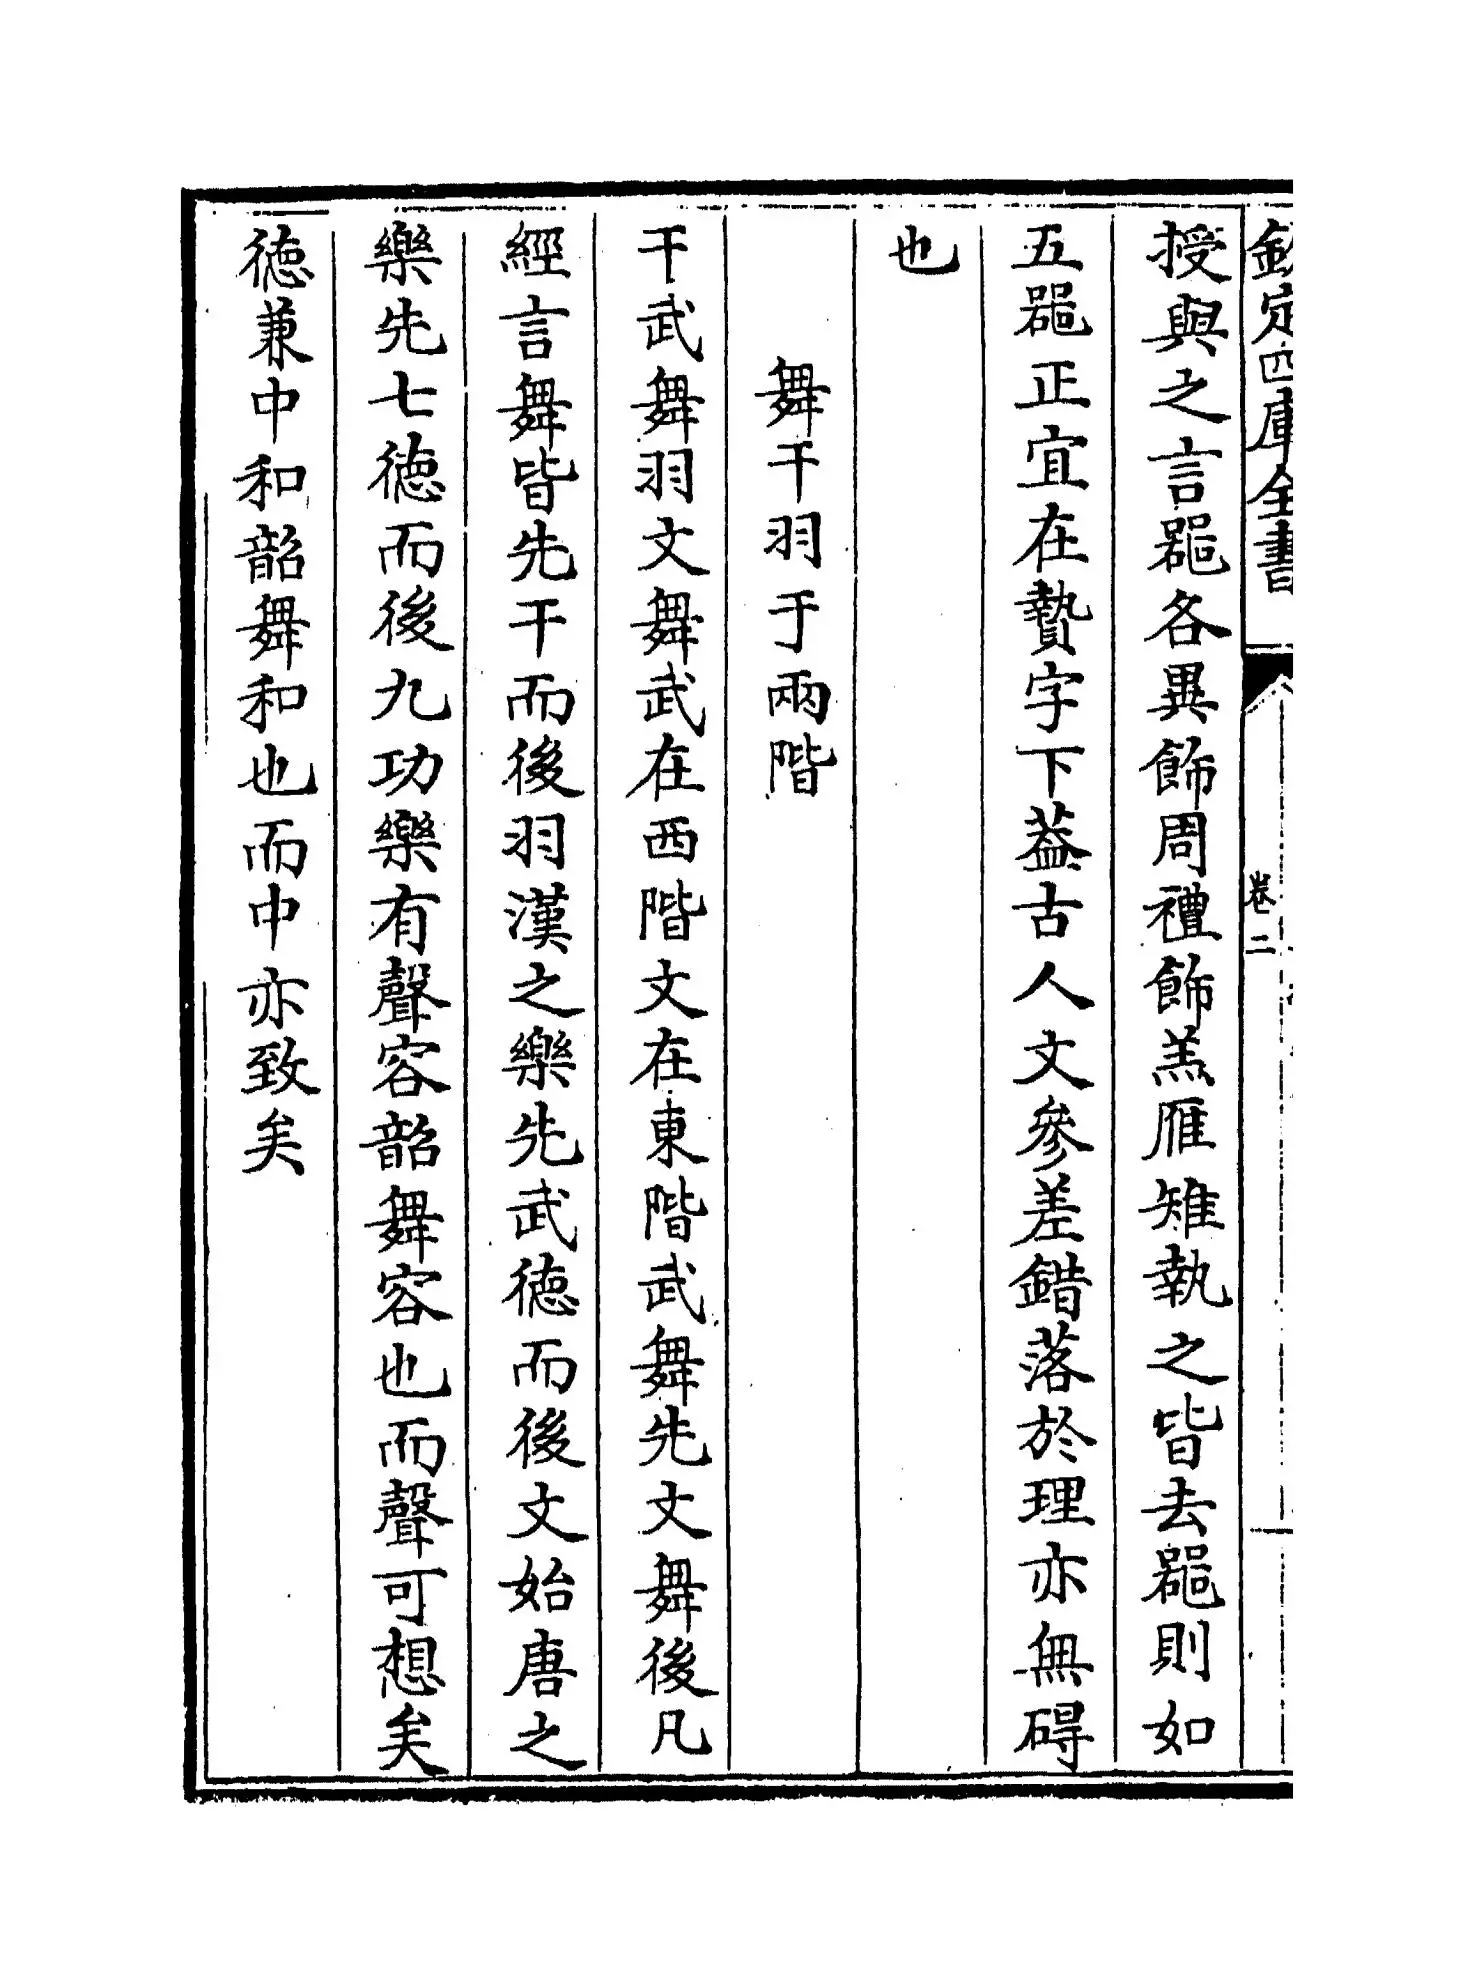 欽定四庫全書
卷二
授與之言器各異飾周禮飾羔雁雉執之皆去器則如
五器正宜在贄字下葢古人文參差錯落於理亦無碍
也
舞干羽于兩階
干武舞羽文舞武在西階文在東階武舞先文舞後凡
經言舞皆先干而後羽漢之樂先武德而後文始唐之
樂先七德而後九功樂有聲容韶舞容也而聲可想矣
德兼中和韶舞和也而中亦致矣